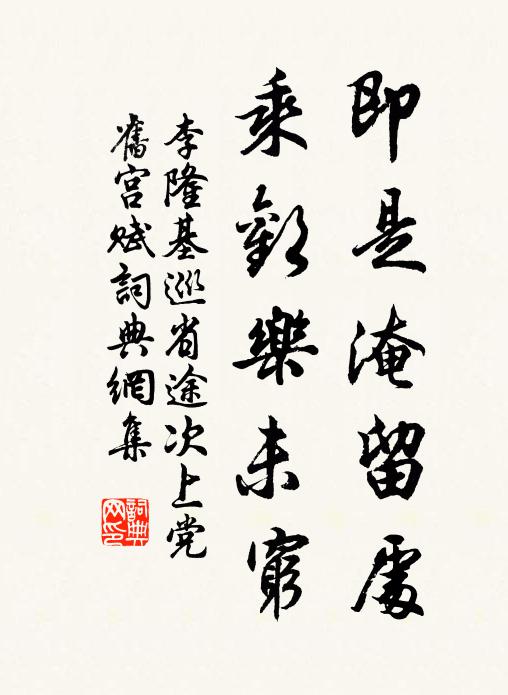 即是淹留處
乘歡樂未窮
李隆基巡省途次上党
舊宮赋詞典網集
詞典网印